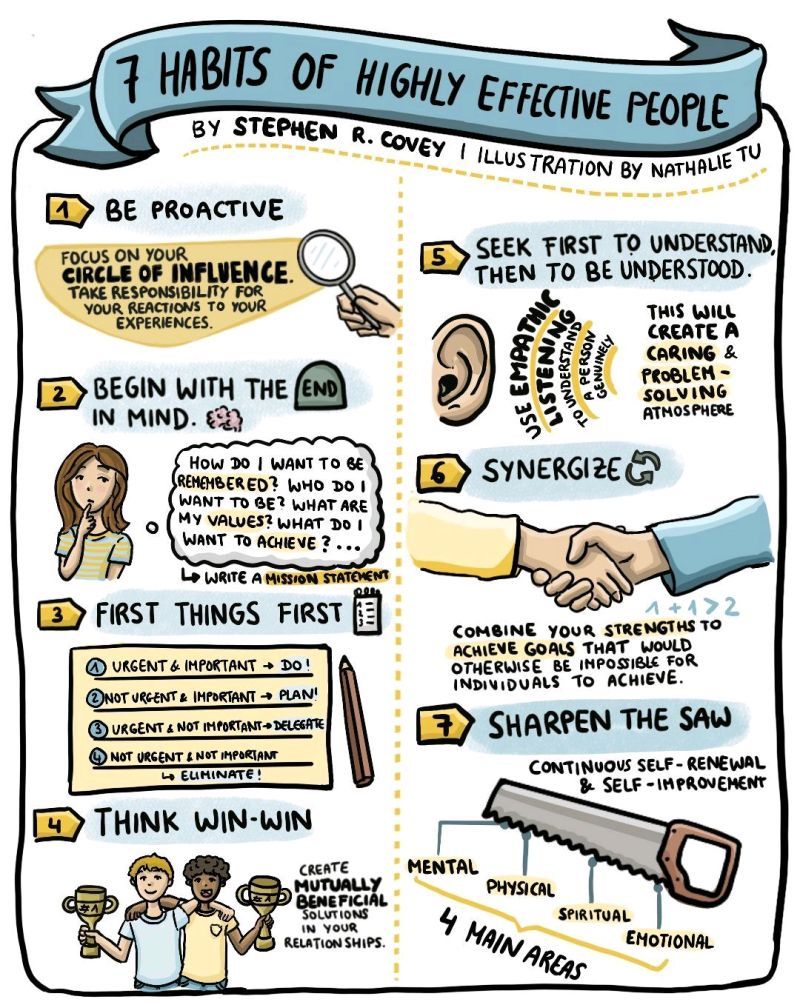 7 HABITS OF HIGHLY EFFECTIVE PEOPLE
BY STEPHEN R. COVEY | ILLUSTRATION BY NATHALIE TU
1 BE PROACTIVE
FOCUS ON YOUR
CIRCLE OF INFLUENCE.
TAKE RESPONSIBILITY FOR
YOUR REACTIONS TO YOUR
EXPERIENCES.
2 BEGIN WITH THE END
IN MIND.
HOW DO I WANT TO BE
REMEMBERED? WHO DO I
WANT TO BE? WHAT ARE
MY VALUES? WHAT DO I
WANT TO ACHIEVE?...
↳ WRITE A MISSION STATEMENT
3 FIRST THINGS FIRST
1 URGENT & IMPORTANT → DO!
2 NOT URGENT & IMPORTANT → PLAN!
3 URGENT & NOT IMPORTANT → DELEGATE
4 NOT URGENT & NOT IMPORTANT
↳ ELIMINATE!
4 THINK WIN-WIN
#1
#1
CREATE
MUTUALLY
BENEFICIAL
SOLUTIONS
IN YOUR
RELATIONSHIPS.
5 SEEK FIRST TO UNDERSTAND,
THEN TO BE UNDERSTOOD.
USE EMPATHIC
LISTENING
TO UNDERSTAND
A PERSON
GENUINELY
THIS WILL
CREATE A
CARING &
PROBLEM-
SOLVING
ATMOSPHERE
6 SYNERGIZE
1+1>2
COMBINE YOUR STRENGTHS TO
ACHIEVE GOALS THAT WOULD
OTHERWISE BE IMPOSSIBLE FOR
INDIVIDUALS TO ACHIEVE.
7 SHARPEN THE SAW
CONTINUOUS SELF-RENEWAL
& SELF-IMPROVEMENT
MENTAL
PHYSICAL
SPIRITUAL
EMOTIONAL
4 MAIN AREAS